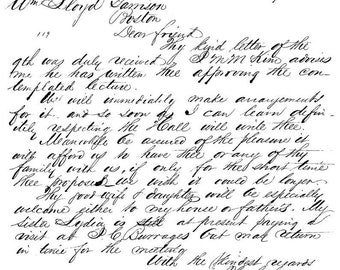 Wm Lloyd Garrison
Boston
Dear friend
Thy kind letter of the
9th was duly received & J M McKim advises
me he has written thee approving the con-
templated lecture.
We will immediately make arrangements
for it, and so soon as I can learn defin-
itely respecting the Hall will write thee.
Meanwhile be assured of the pleasure it
will afford us to have thee or any of thy
family with us, if only for the short time
thee proposes, we wish it could be longer
Thy good wife & daughter will be especially
welcome either to my house or fathers. My
Sister Lydia is still at present paying a
visit at J C Burrages but may return
in time for the meeting
With the kindest regards